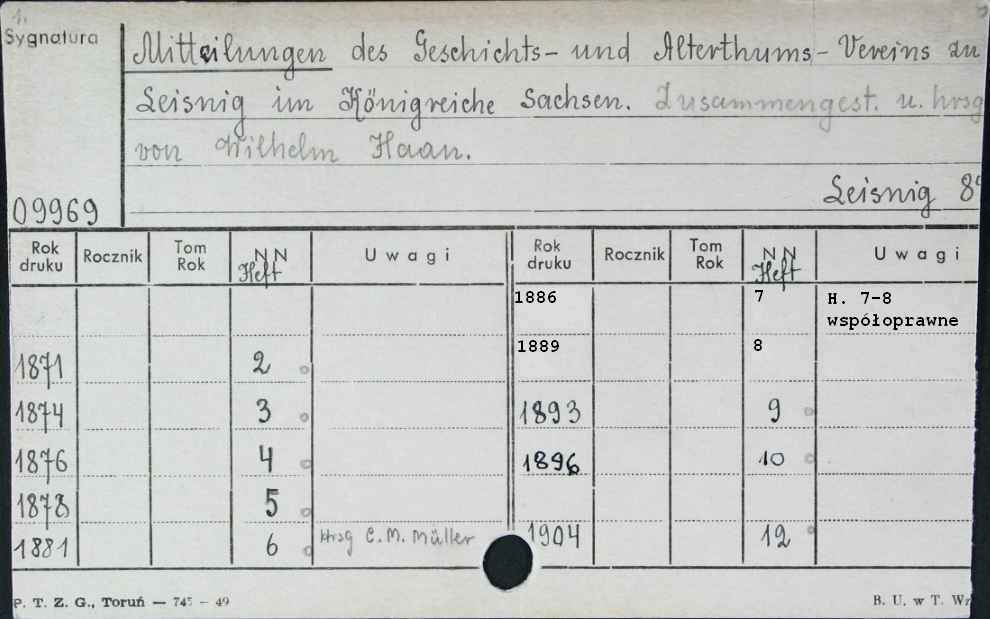 1.
Sygnatura
Mitteilungen des Geschichts- und Alterthums-Vereins zu
Leisnig im Königreiche Sachsen. Zusammengest. u. hrsg
von Wilhelm Haan.
Leisnig 8°
09969
Rok druku Rocznik Tom Rok NN Heft Uwagi Rok druku Rocznik Tom Rok NN Heft Uwagi
1886 7 H. 7-8
współoprawne
1889 8
1871 2
1874 3 1893 9
1876 4 1896 10
1878 5
1881 6 hrsg C. M. Müller 1904 12
P. T. Z. G., Toruń — 745 - 49 B. U. w T. Wz